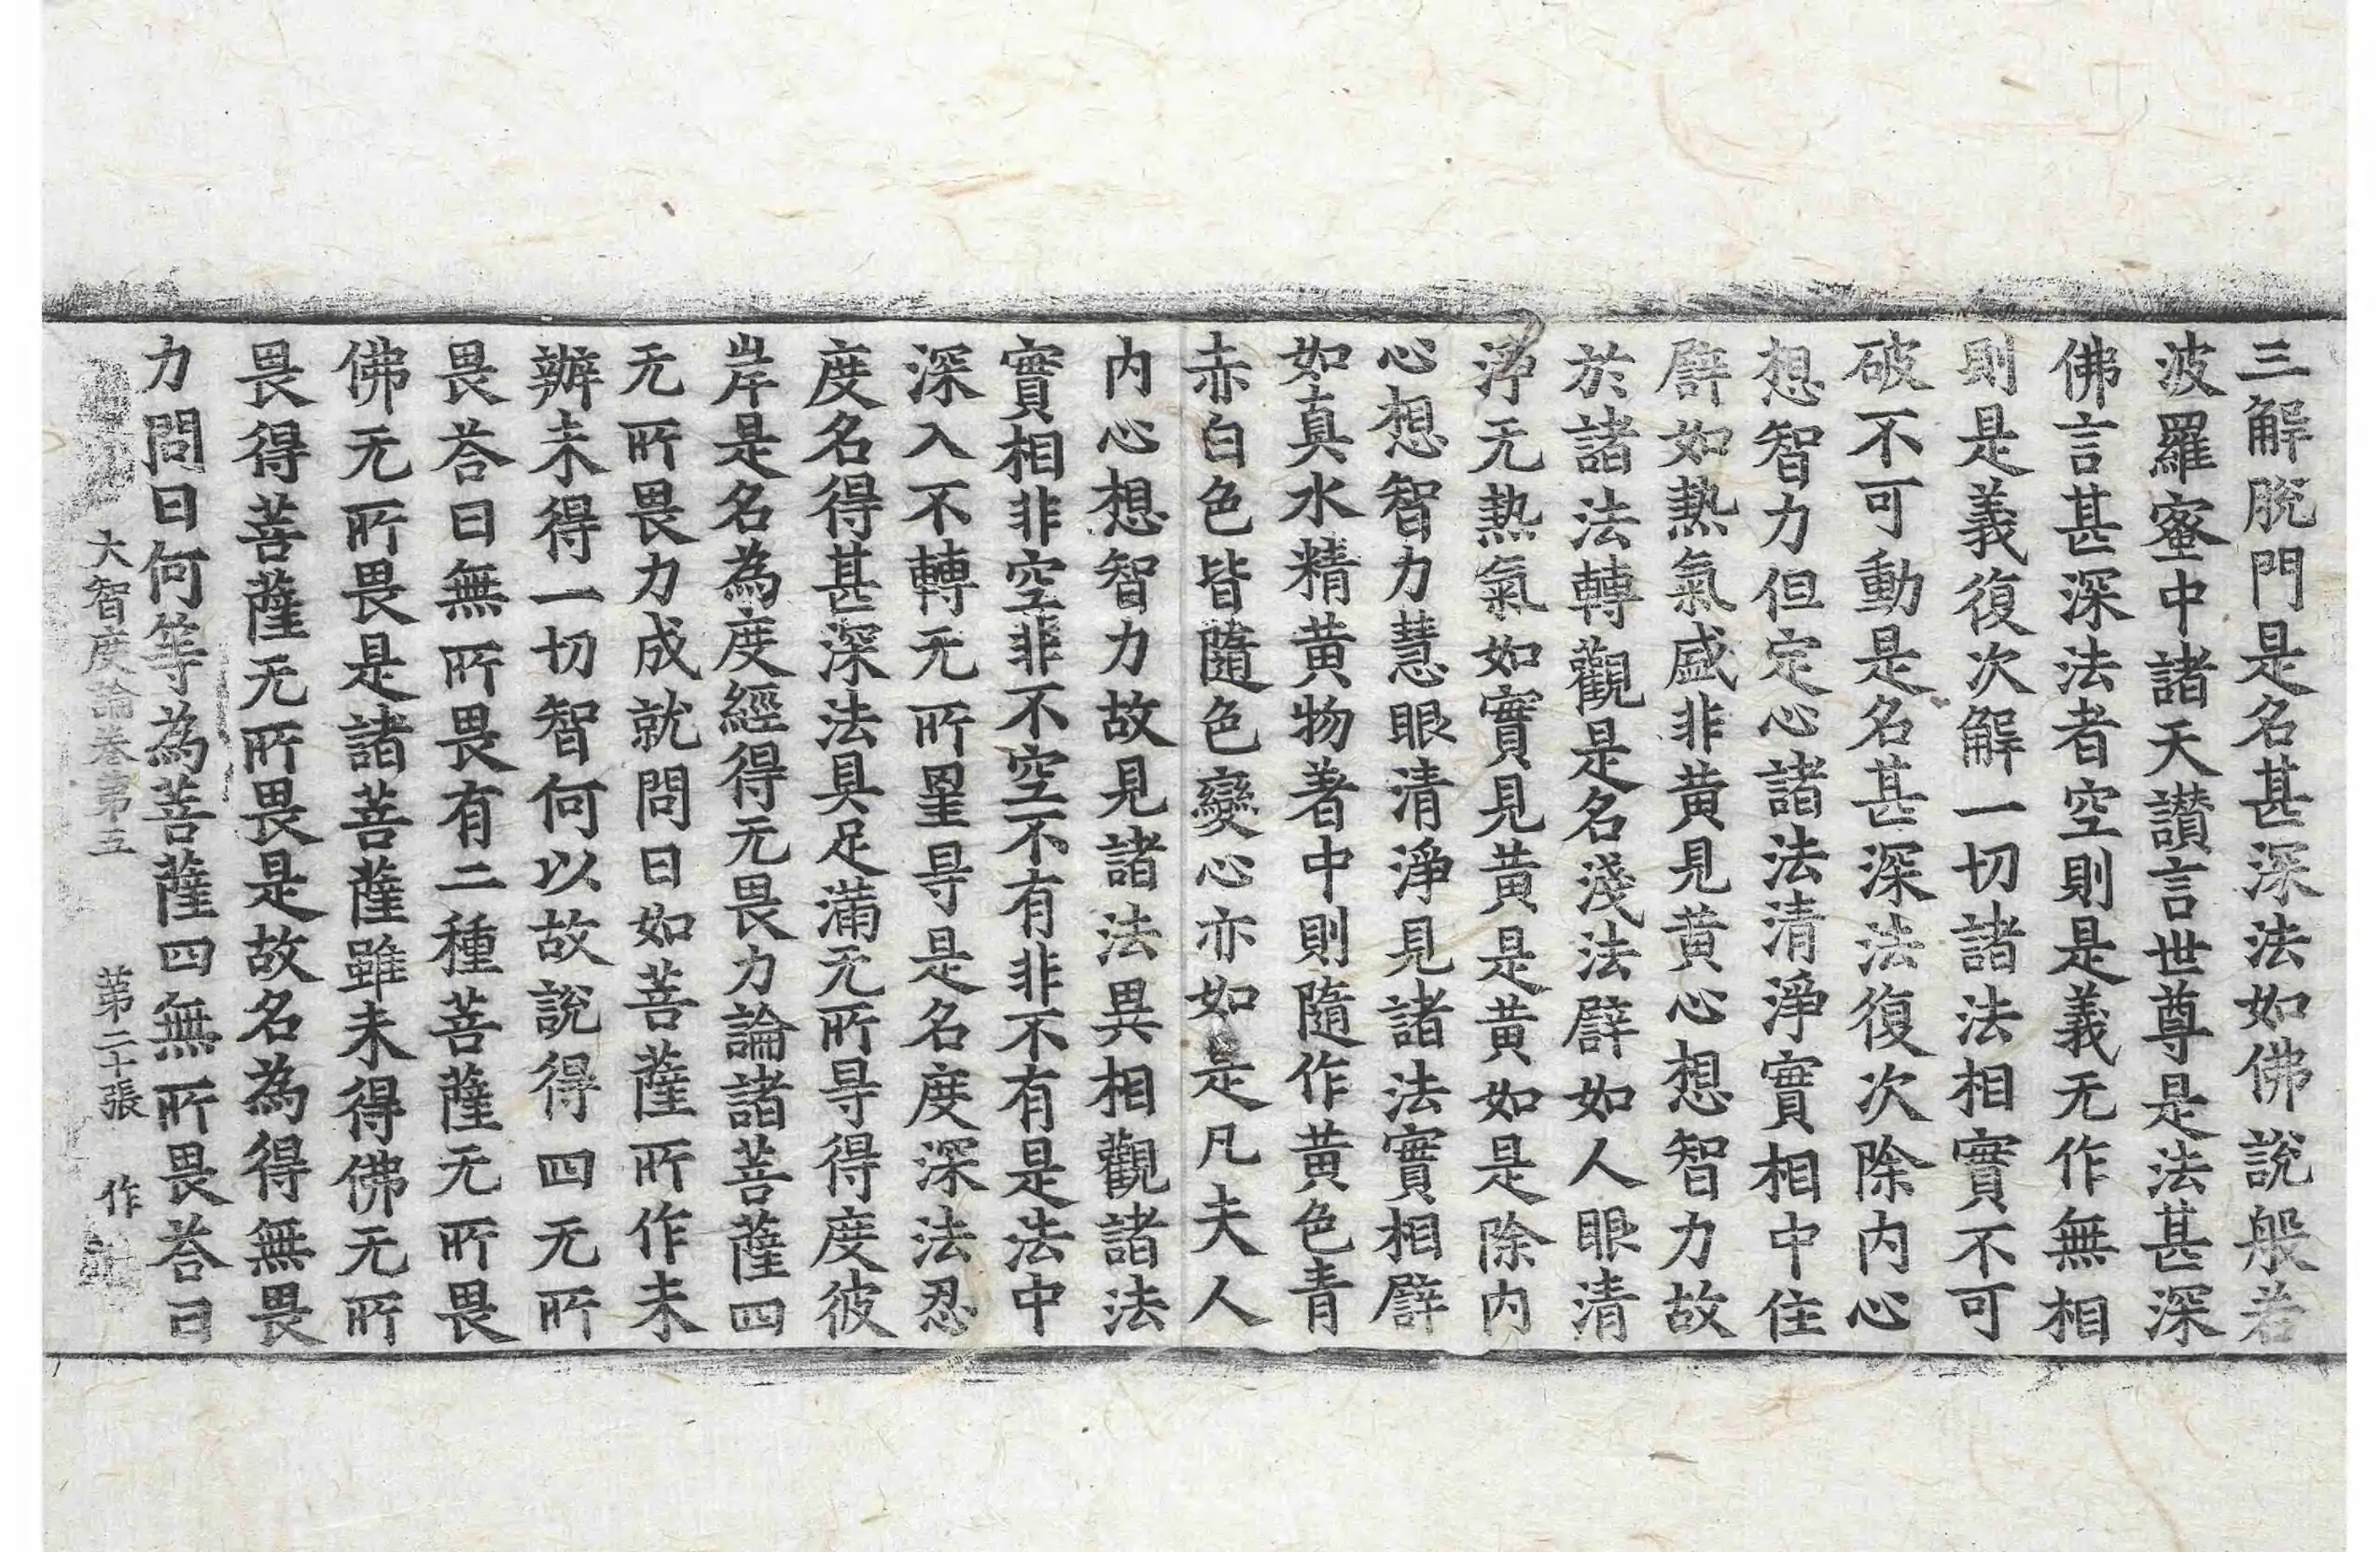 三解脫門是名甚深法如佛說般若
波羅蜜中諸天讃言世尊是法甚深
佛言甚深法者空則是義无作無相
則是義復次解一切諸法相實不可
破不可動是名甚深法復次除內心
想智力但定心諸法清淨實相中住
辟如熱氣盛非黃見黃心想智力故
於諸法轉觀是名淺法辟如人眼清
淨无熱氣如實見黃是黃如是除內
心想智力慧眼清淨見諸法實相辟
如真水精黃物著中則隨作黃色青
赤白色皆隨色變心亦如是凡夫人
內心想智力故見諸法異相觀諸法
實相非空非不空不有非不有是法中
深入不轉无所罣㝵是名度深法忍
度名得甚深法具足滿无所㝵得度彼
岸是名為度經得无畏力論諸菩薩四
无所畏力成就問曰如菩薩所作未
辦未得一切智何以故說得四无所
畏荅曰無所畏有二種菩薩无所畏
佛无所畏是諸菩薩雖未得佛无所
畏得菩薩无所畏是故名為得無畏
力問曰何等為菩薩四無所畏荅曰
大智度論卷第五 苐二十張 作